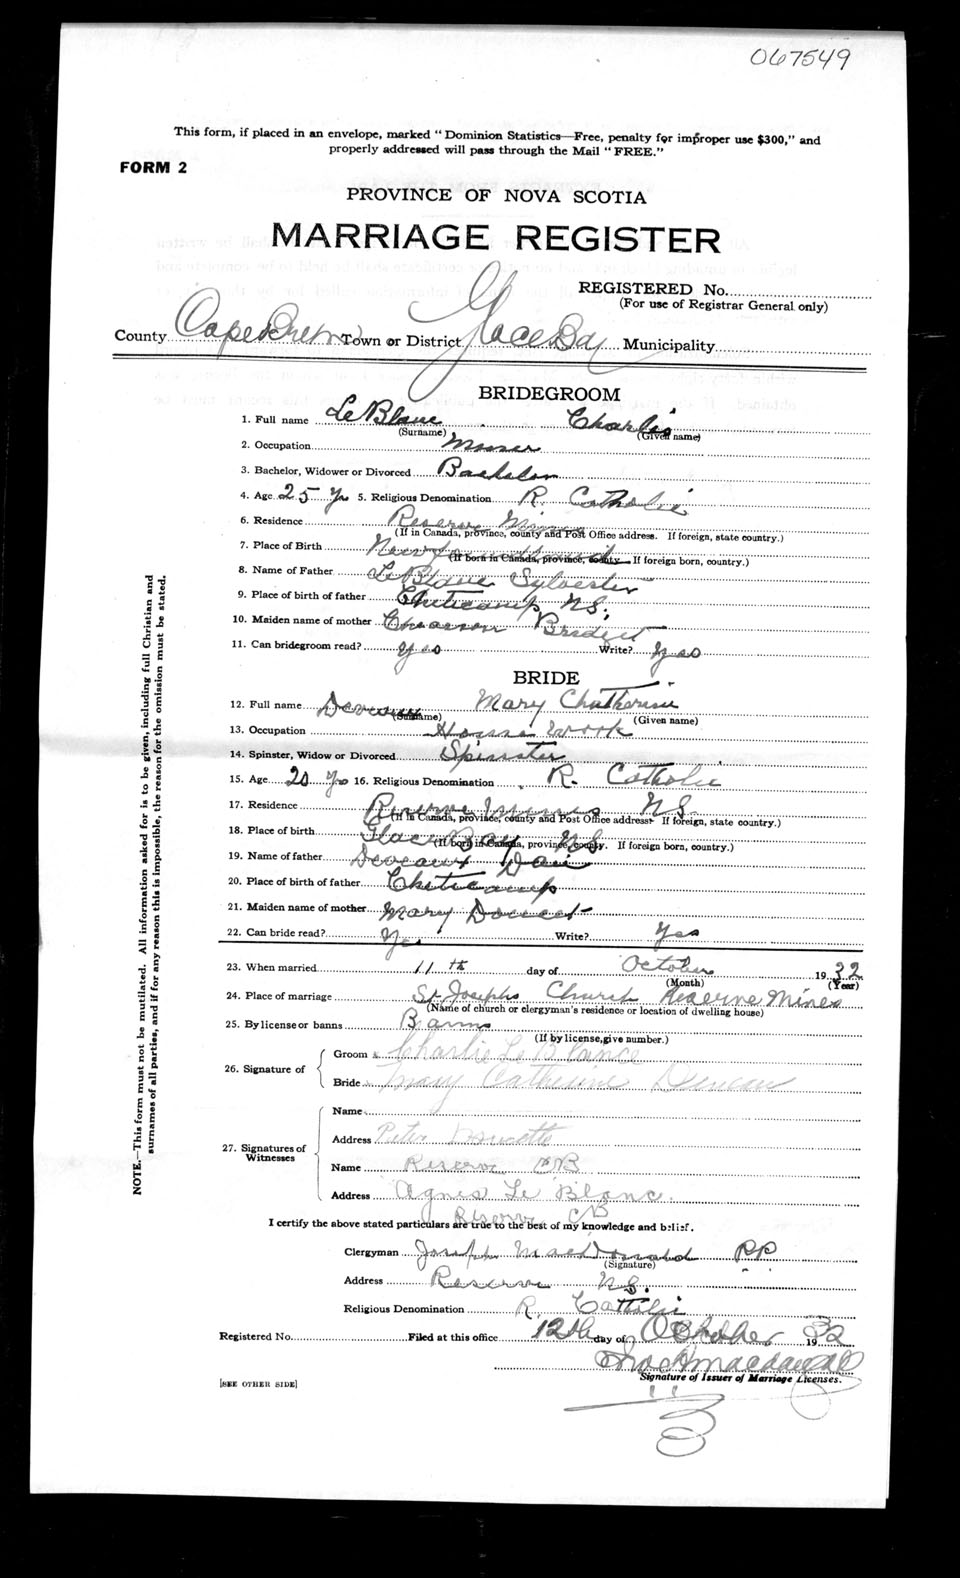 067549
This form, if placed in an envelope, marked " Dominion Statistics—Free, penalty for improper use $300," and
properly addressed will pass through the Mail " FREE."
FORM 2
PROVINCE OF NOVA SCOTIA
MARRIAGE REGISTER
REGISTERED No.
(For use of Registrar General only)
County Cape Breton Town or District Glace Bay Municipality
BRIDEGROOM
1. Full name LeBlanc Charlie
(Surname) (Given name)
2. Occupation Miner
3. Bachelor, Widower or Divorced Bachelor
4. Age 25 yrs 5. Religious Denomination R. Catholic
6. Residence Reserve Mines
(If in Canada, province, county and Post Office address. If foreign, state country.)
7. Place of Birth Newfoundland
(If born in Canada, province, county. If foreign born, country.)
8. Name of Father LeBlanc Sylvester
9. Place of birth of father Cheticamp N.S.
10. Maiden name of mother Chiasson Bridget
11. Can bridegroom read? Yes Write? Yes
BRIDE
12. Full name Mary Chatherine
(Surname) (Given name)
13. Occupation House work
14. Spinster, Widow or Divorced Spinster
15. Age 20 yrs 16. Religious Denomination R. Catholic
17. Residence Reserve Mines N.S.
(If in Canada, province, county and Post Office address. If foreign, state country.)
18. Place of birth Glace Bay N.S.
(If born in Canada, province, county. If foreign born, country.)
19. Name of father Deveaux
20. Place of birth of father Cheticamp
21. Maiden name of mother Mary Doucet
22. Can bride read? Yes Write? Yes
23. When married 11th day of October 1932
(Month) (Year)
24. Place of marriage St Josephs Church Reserve Mines
(Name of church or clergyman's residence or location of dwelling house)
25. By license or banns Banns
(If by license, give number.)
26. Signature of
Groom Charlie Le Blance
Bride Mary Catherine
27. Signatures of Witnesses
Name
Address Peter Doucette
Name Reserve CB
Address Agnes Le Blanc.
Reserve CB
I certify the above stated particulars are true to the best of my knowledge and belief.
Clergyman Joseph MacDonald PP
(Signature)
Address Reserve N.S.
Religious Denomination R. Catholic
Registered No. Filed at this office 12th day of October 1932
Signature of Issuer of Marriage Licenses.
[SEE OTHER SIDE]
NOTE.—This form must not be mutilated. All information asked for is to be given, including full Christian and
surnames of all parties, and if for any reason this is impossible, the reason for the omission must be stated.